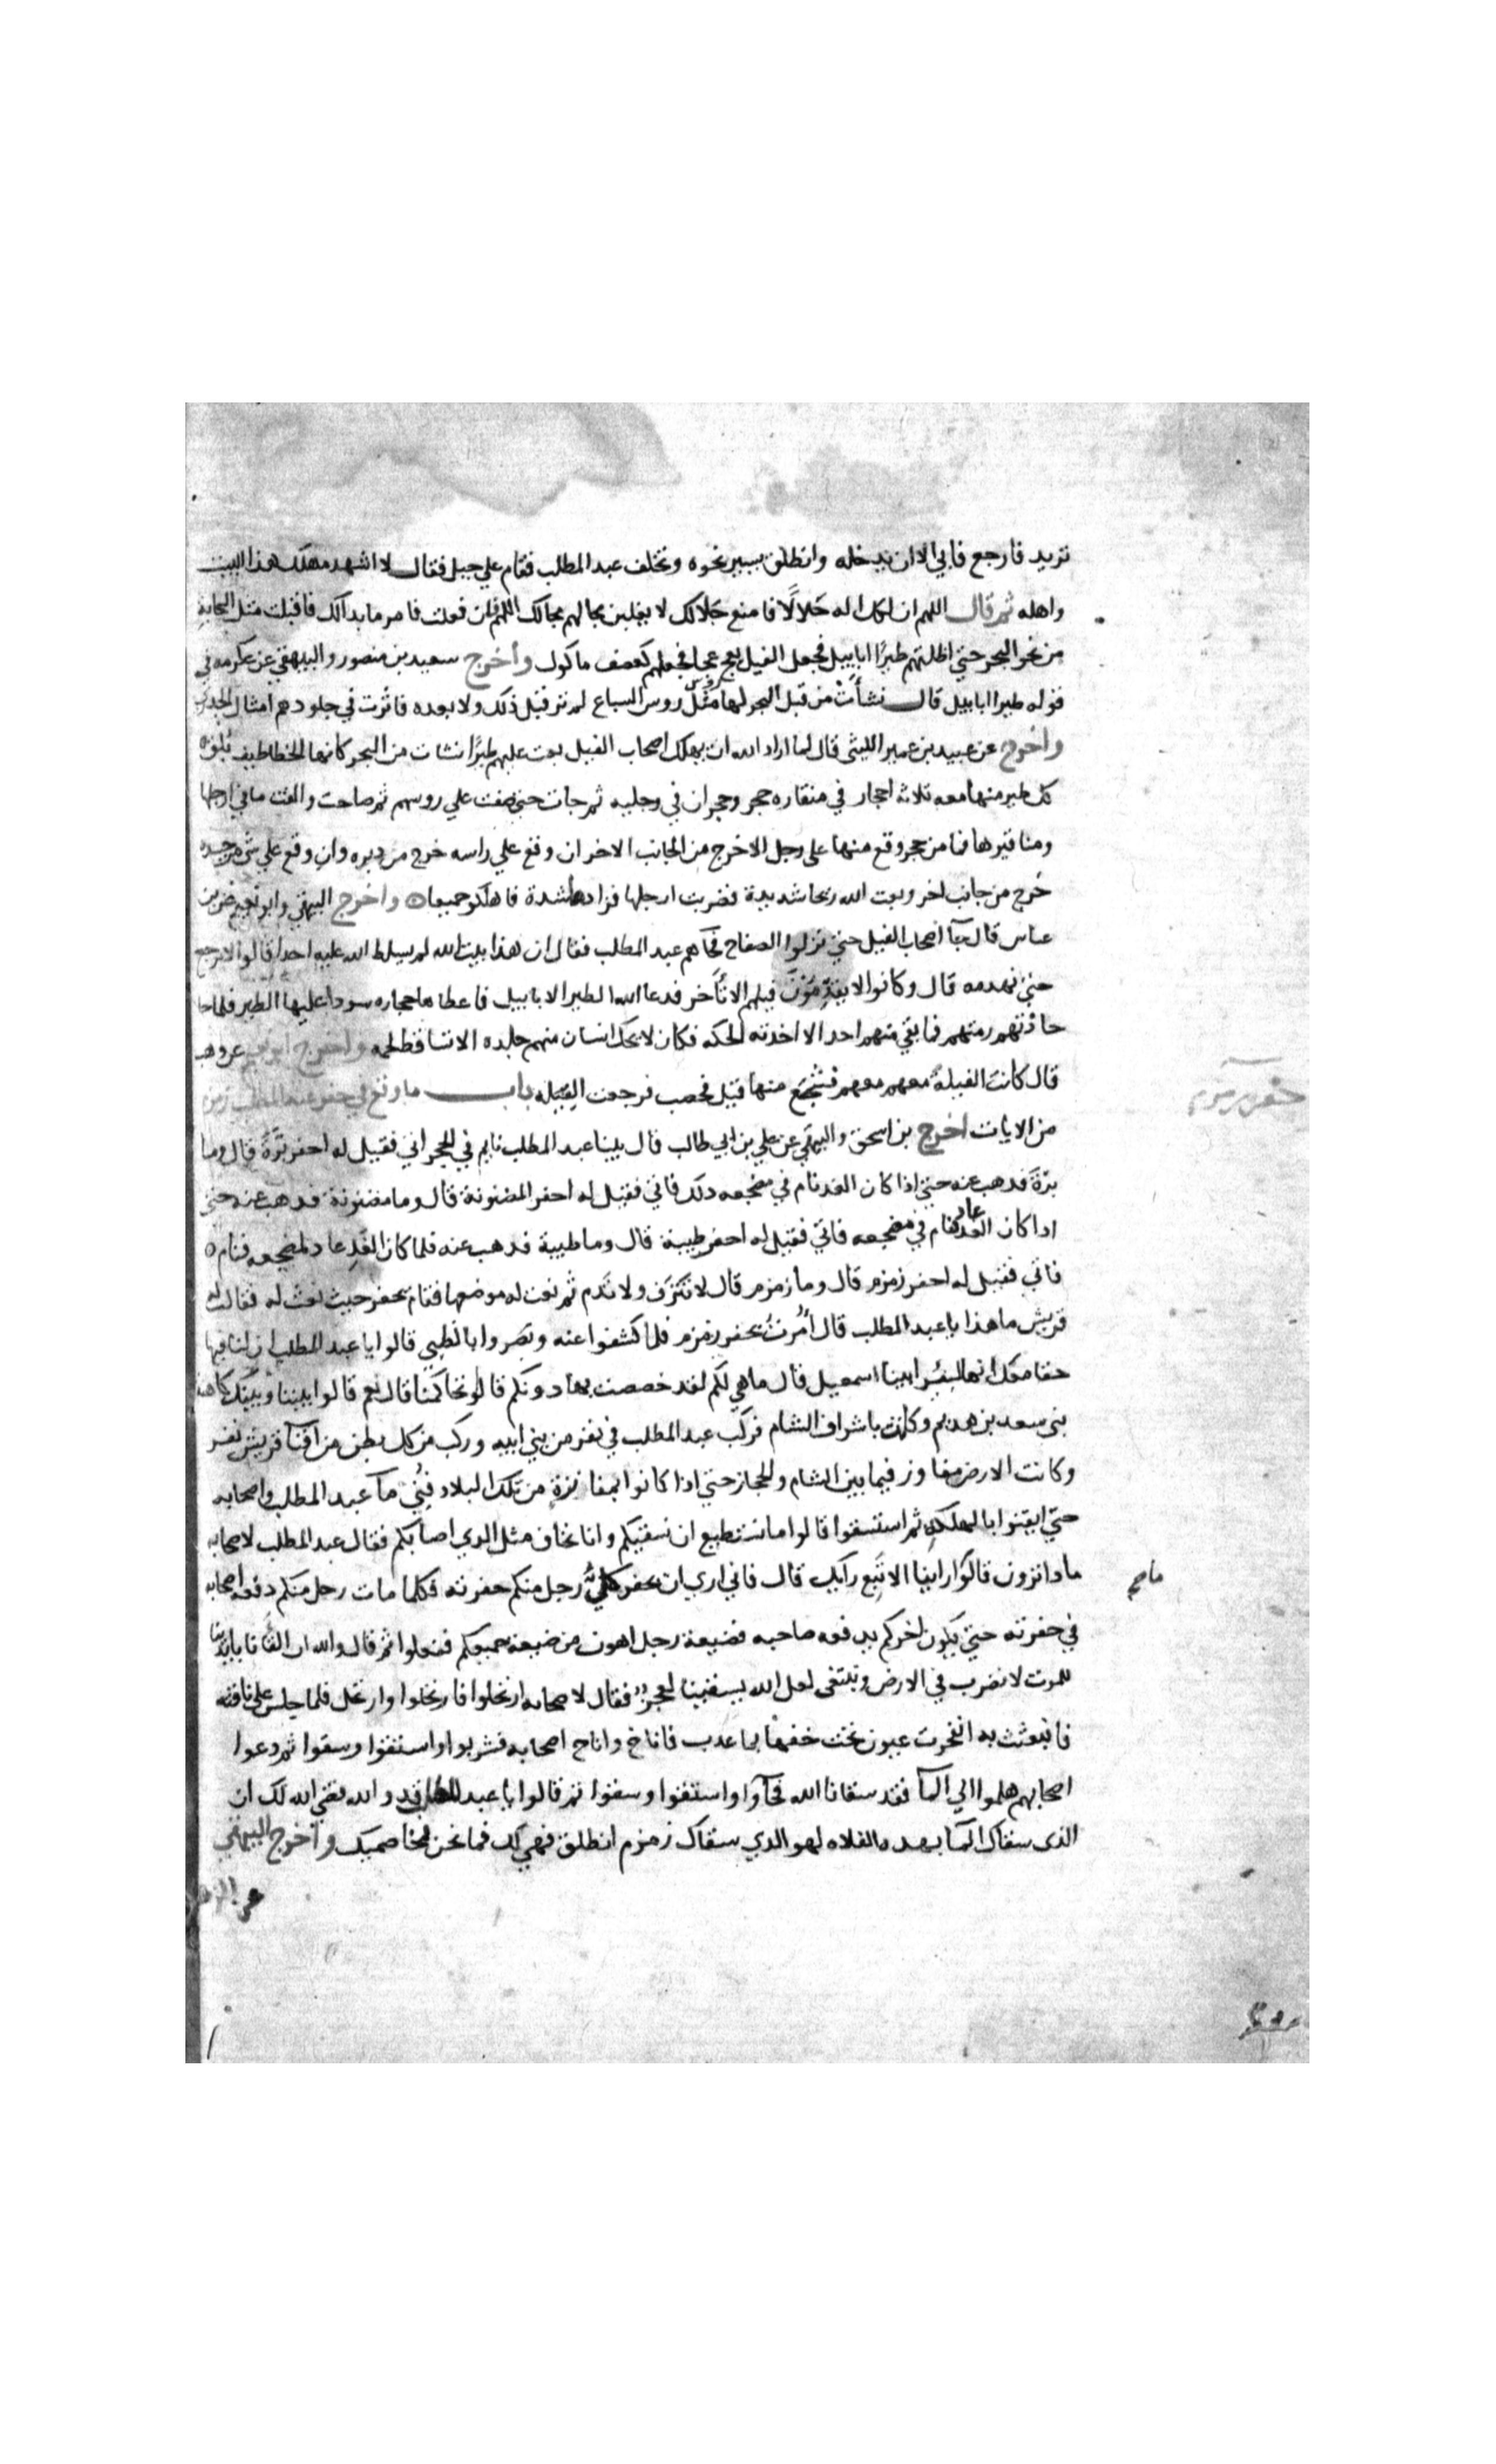 تريد فارجع فابي الا ان يدخله وانطلق يسير نحوه وتخلف عبد المطلب فقام علي جبل فقال لا اشهد مهلك هذا البيت
واهله ثم قال اللهم ان لكل اله حَلالًا فامنع حَلالك لا يغلبن محالهم محالك اللهم فان فعلت فامر ما بدالك فاقبلت مثل السحابة
من نحو البحر حتي اظلتهم طيرًا ابابيل فجعل الفيل يعج عجا فجعلهم كعصف ماكول وأخرج سعيد بن منصور والبيهقي عن عكرمه في
قوله طيرا ابابيل قال نشأتْ من قبل البحر لها مثل روس السباع لم تر قبل ذلك ولا بعده فاثرت في جلودهم امثال الجدري
وأخرج عن عبيد بن عمير الليثي قال لما اراد الله ان يهلك اصحاب الفيل بعث عليهم طيرًا نشات من البحر كانها الخطاطيف بلق
كل طير منها معه ثلاثه احجار في منقاره حجر وحجران في رجليه ثم جات حتي صفت علي روسهم ثم صاحت والقت ما في ارجلها
ومناقيرها فما من حجر وقع منها على رجل الا خرج من الجانب الاخر ان وقع علي راسه خرج من دبره وان وقع علي شي من جسده
خرج من جانب اخر وبعث الله ريحا شديدة فضربت ارجلها فزادها شدة فاهلكو جميعا ه واخرج البيهقي وابو نعيم عن بن
عباس قال جآ اصحاب الفيل حتي نزلوا الصفاح فجآهم عبد المطلب فقال ان هذا بيت الله لم يسلط الله عليه احدا قالوا لا نرجع
حتي نهدمه قال وكانوا لا يقدِّمُونَ فيلهم الا تأخر فدعا الله الطير الابابيل فاعطاها حجاره سودا عليها الطير فلما
حاذتهم رمتهم فما بقي منهم احد الا اخذته الحكه فكان لا يحك انسان منهم جلده الا تساقط لحمه واخرج ابو نعيم عن وهب
قال كانت الفيلةُ معهم معهم فشجع منها فيل فحصب فرجعت الفِيَله باب ما وقع في حفر عبد المطلب زمزم
من الايات اخرج بن اسحق والبيهقي عن علي بن ابي طالب قال بينا عبد المطلب نايم في الحجر اتي فقيل له احفر بَرَّةَ قال وما
برّة فدهب عنه حتي اذا كان الغد نام في مضجعه دلك فاتي فقيل له احفر المضنونة قال وما مضنونة فدهب عنه حتي
اداكان الغد عاد فنام في مضجعه فاتي فقيل له احفر طيبة قال وما طيبة فدهب عنه فلما كان الغد عاد لمضجعه فنام ه
فاتي فقيل له احفر زمزم قال وما زمزم قال لا تُنْزَف ولا تُدم ثم نعت له موضعها فقام يحفر حيث نعت له فقالت له
قريش ما هذا يا عبد المطلب قال أُمرتُ بحفر زمزم فلما كشفوا عنه وبصروا بالطيي قالوا يا عبد المطلب ان لنا فيها
حقا معك انها لبئر ابينا اسمعيل قال ما هي لكم لقد خصصت بها دونكم قالوا نحاكمنا قال نعم قالوا بيننا وبينك كاهنة
بني سعد بن هديم وكانت باشراف الشام فركب عبد المطلب في نفر من بني ابيه وركب من كل بطن من افنآ قريش نفر
وكانت الارض مفاوز فيما بين الشام والحجاز حتي اذا كانوا بمفازةٍ من تلك البلاد فني مآ عبد المطلب واصحابه
حتي ايقنوا بالهلكه ثم استسقوا قالوا ما نستطيع ان نسقيكم وانا نخاف مثل الدي اصابكم فقال عبد المطلب لاصحابه
مادا ترون قالوا ما راينا الا تَبَع رآيك قال فاني اري ان يحفر كل رجل منكم حفرته فكلما مات رجل منكم دفعه اصحابه
في حفرته حتي يكون اخركم يدفعه صاحبه فضيعة رجل اهون من ضيعة جميعكم ففعلوا ثم قال والله ان القآنا بايدينا
للموت لا نضرب في الارض ونبتغي لعل الله يسقينا لعجزٌ فقال لاصحابه ارتحلوا فارتحلوا وارتحل فلما جلس علي ناقته
فانبعثت به انفجرت عيون تحت خفها بما عدب فاناخ واناخ اصحابه فشربوا واستقوا وسقوا ثم دعوا
اصحابهم هلموا الي المآ فقد سقانا الله فجآوا واستقوا وسقوا ثم قالوا يا عبد المطلب قد والله قضي الله لك ان
الذى سقاك المآ بهده الفلاه لهو الدي سقاك زمزم انطلق فهي لك فما نحن بمخاصميك وأخرج البيهقي
عن الزهري
حفر زمزم
ما صح